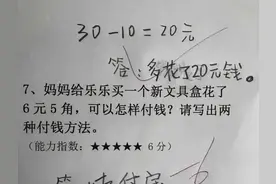 30-10=20元
答:多花了20元钱。
7、妈妈给乐乐买一个新文具盒花了
6元5角，可以怎样付钱？请写出两
种付钱方法。
（能力指数：★★★★★ 6分）
答:支付宝